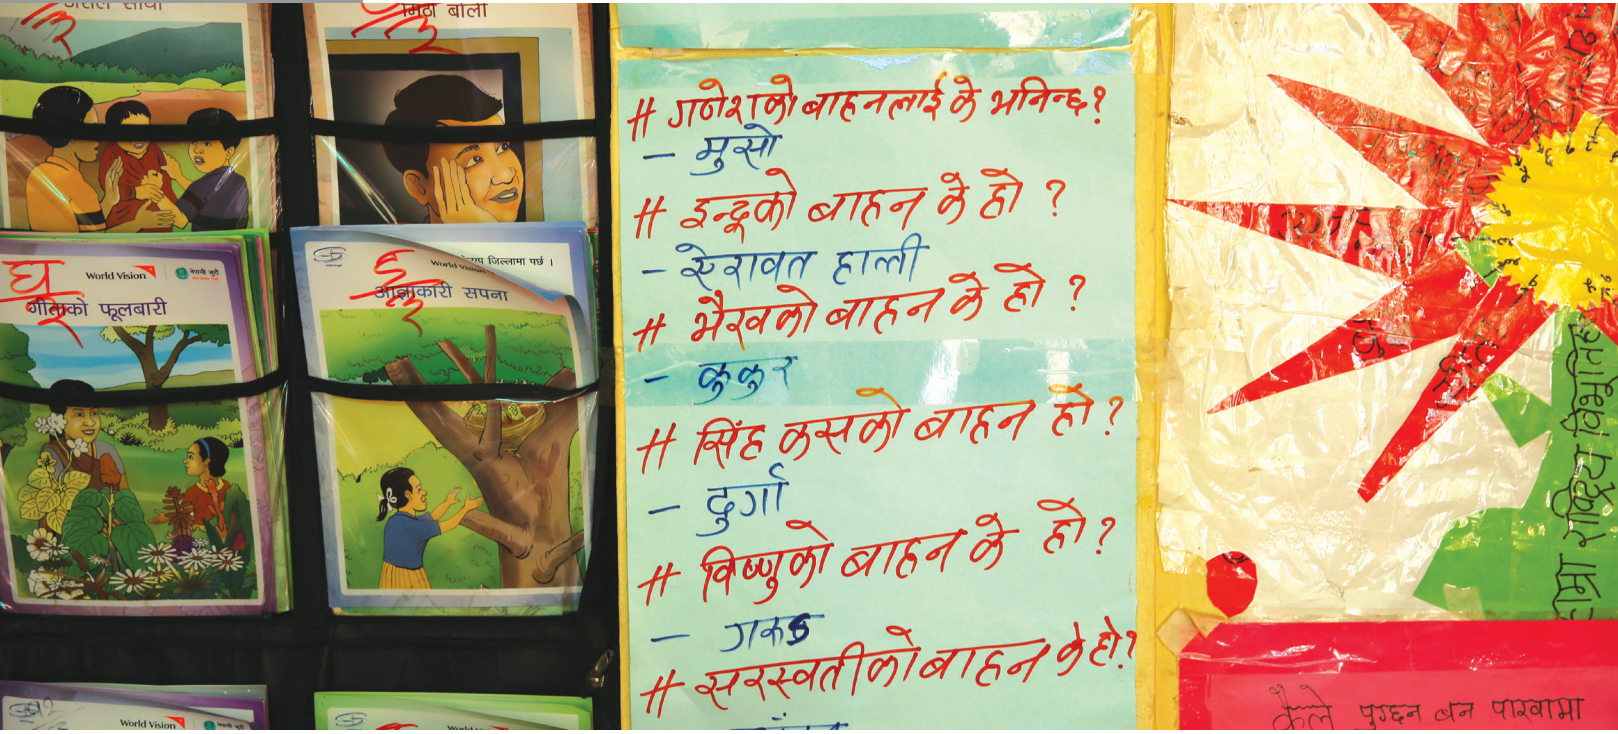 मिठो बोली
घ
२
World Vision
गीताको फूलबारी
ङ
२
World Vision
जिल्लामा पर्छ ।
आज्ञाकारी सपना
World Vision
# गणेशको बाहनलाई के भनिन्छ?
- मुसो
# इन्द्रको बाहन के हो ?
- ऐरावत हात्ती
# भैरवको बाहन के हो ?
- कुकुर
# सिंह कसको बाहन हो ?
- दुर्गा
# विष्णुको बाहन के हो ?
- गरुड
# सरस्वतीको बाहन के हो?
हाम्रा राष्ट्रिय विभूतिह
कैले पुग्छन बन पाखामा